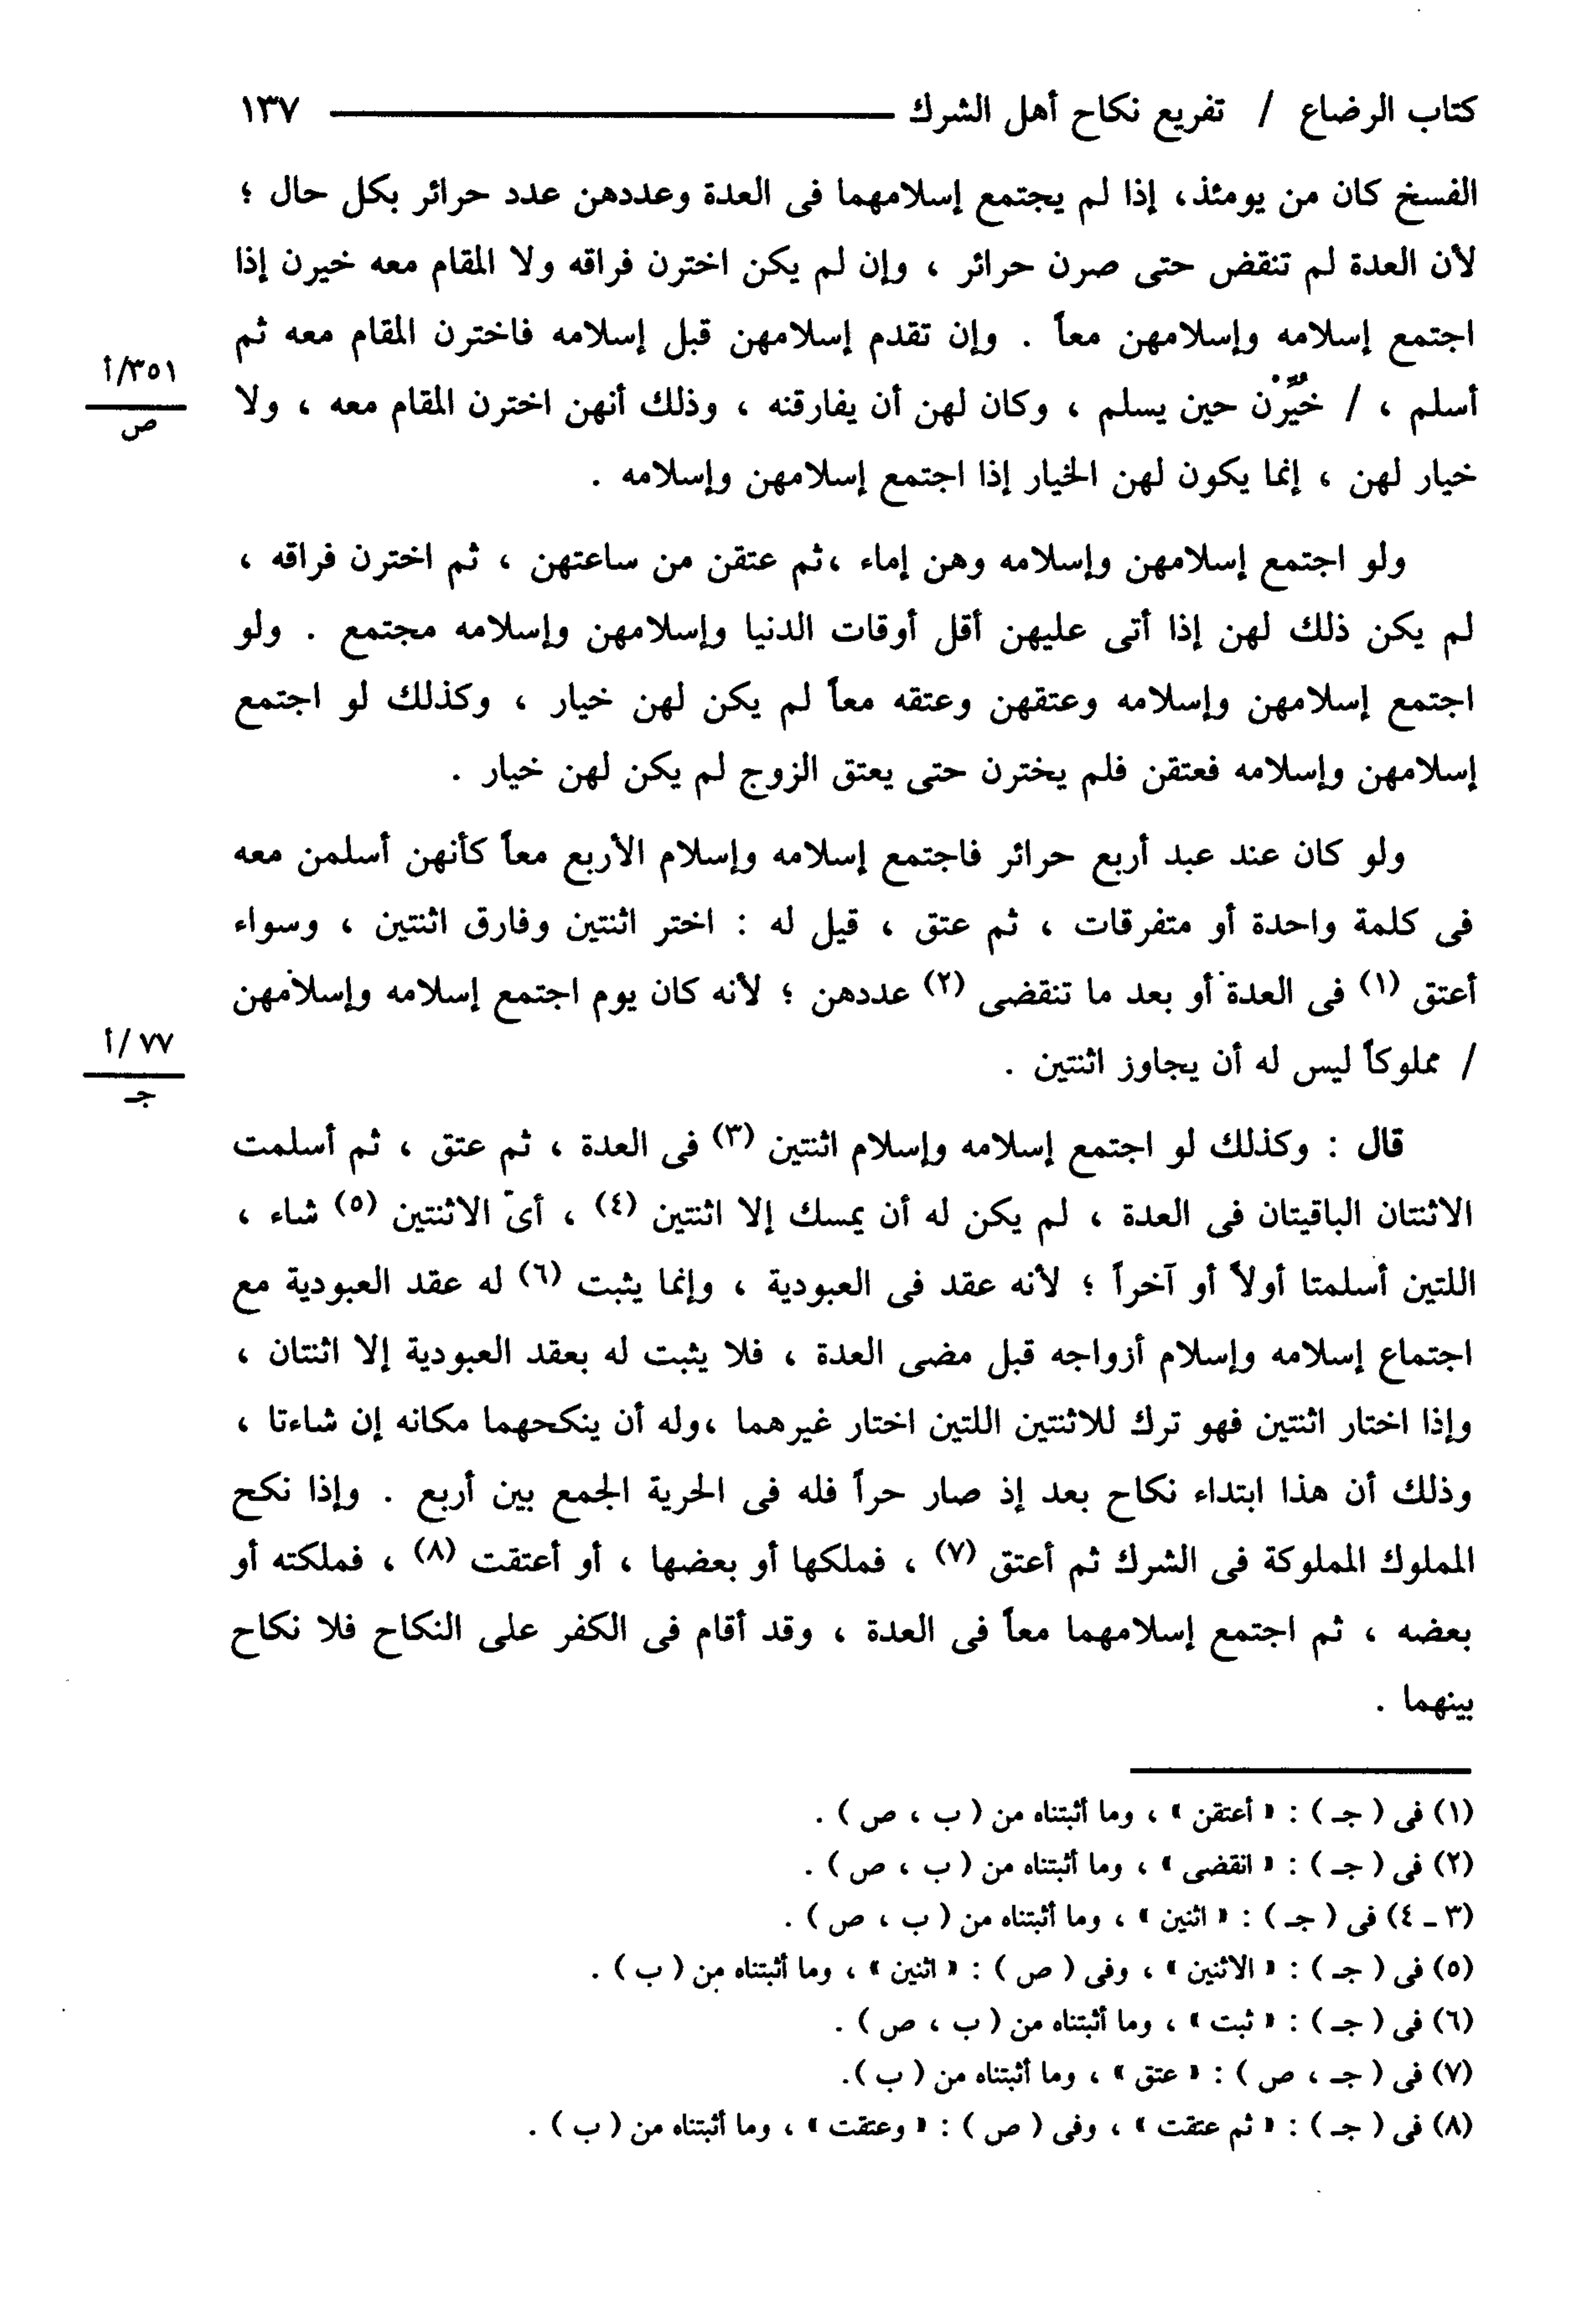 كتاب الرضاع / تفريع نكاح أهل الشرك ــــــــــــــــــــ ١٣٧
الفسخ كان من يومئذ، إذا لم يجتمع إسلامهما فى العدة وعددهن عدد حرائر بكل حال ؛
لأن العدة لم تنقض حتى صرن حرائر ، وإن لم يكن اخترن فراقه ولا المقام معه خيرن إذا
اجتمع إسلامه وإسلامهن معاً . وإن تقدم إسلامهن قبل إسلامه فاخترن المقام معه ثم
أسلم ، / خُيِّرْن حين يسلم ، وكان لهن أن يفارقنه ، وذلك أنهن اخترن المقام معه ، ولا
٣٥١/أ
ص
خيار لهن ، إنما يكون لهن الخيار إذا اجتمع إسلامهن وإسلامه .
ولو اجتمع إسلامهن وإسلامه وهن إماء ،ثم عتقن من ساعتهن ، ثم اخترن فراقه ،
لم يكن ذلك لهن إذا أتى عليهن أقل أوقات الدنيا وإسلامهن وإسلامه مجتمع . ولو
اجتمع إسلامهن وإسلامه وعتقهن وعتقه معاً لم يكن لهن خيار ، وكذلك لو اجتمع
إسلامهن وإسلامه فعتقن فلم يخترن حتى يعتق الزوج لم يكن لهن خيار .
ولو كان عند عبد أربع حرائر فاجتمع إسلامه وإسلام الأربع معاً كأنهن أسلمن معه
فى كلمة واحدة أو متفرقات ، ثم عتق ، قيل له : اختر اثنتين وفارق اثنتين ، وسواء
أعتق (١) فى العدة أو بعد ما تنقضى (٢) عددهن ؛ لأنه كان يوم اجتمع إسلامه وإسلامهن
/ مملوكاً ليس له أن يجاوز اثنتين .
٧٧/أ
جـ
قال : وكذلك لو اجتمع إسلامه وإسلام اثنتين (٣) فى العدة ، ثم عتق ، ثم أسلمت
الاثنتان الباقيتان فى العدة ، لم يكن له أن يمسك إلا اثنتين (٤) ، أىّ الاثنتين (٥) شاء ،
اللتين أسلمتا أولاً أو آخراً ؛ لأنه عقد فى العبودية ، وإنما يثبت (٦) له عقد العبودية مع
اجتماع إسلامه وإسلام أزواجه قبل مضى العدة ، فلا يثبت له بعقد العبودية إلا اثنتان ،
وإذا اختار اثنتين فهو ترك للاثنتين اللتين اختار غيرهما ،وله أن ينكحهما مكانه إن شاءتا ،
وذلك أن هذا ابتداء نكاح بعد إذ صار حراً فله فى الحرية الجمع بين أربع . وإذا نكح
المملوك المملوكة فى الشرك ثم أعتق (٧) ، فملكها أو بعضها ، أو أعتقت (٨) ، فملكته أو
بعضه ، ثم اجتمع إسلامهما معاً فى العدة ، وقد أقام فى الكفر على النكاح فلا نكاح
بينهما .
(١) فى ( جـ ) : « أعتقن » ، وما أثبتناه من ( ب ، ص ) .
(٢) فى ( جـ ) : « انقضى » ، وما أثبتناه من ( ب ، ص ) .
(٣ ـ ٤) فى ( جـ ) : « اثنين » ، وما أثبتناه من ( ب ، ص ) .
(٥) فى ( جـ ) : « الاثنين » ، وفى ( ص ) : « اثنين » ، وما أثبتناه من ( ب ) .
(٦) فى ( جـ ) : « ثبت » ، وما أثبتناه من ( ب ، ص ) .
(٧) فى ( جـ ، ص ) : « عتق » ، وما أثبتناه من ( ب ).
(٨) فى ( جـ ) : « ثم عتقت » ، وفى ( ص ) : « وعتقت » ، وما أثبتناه من ( ب ) .